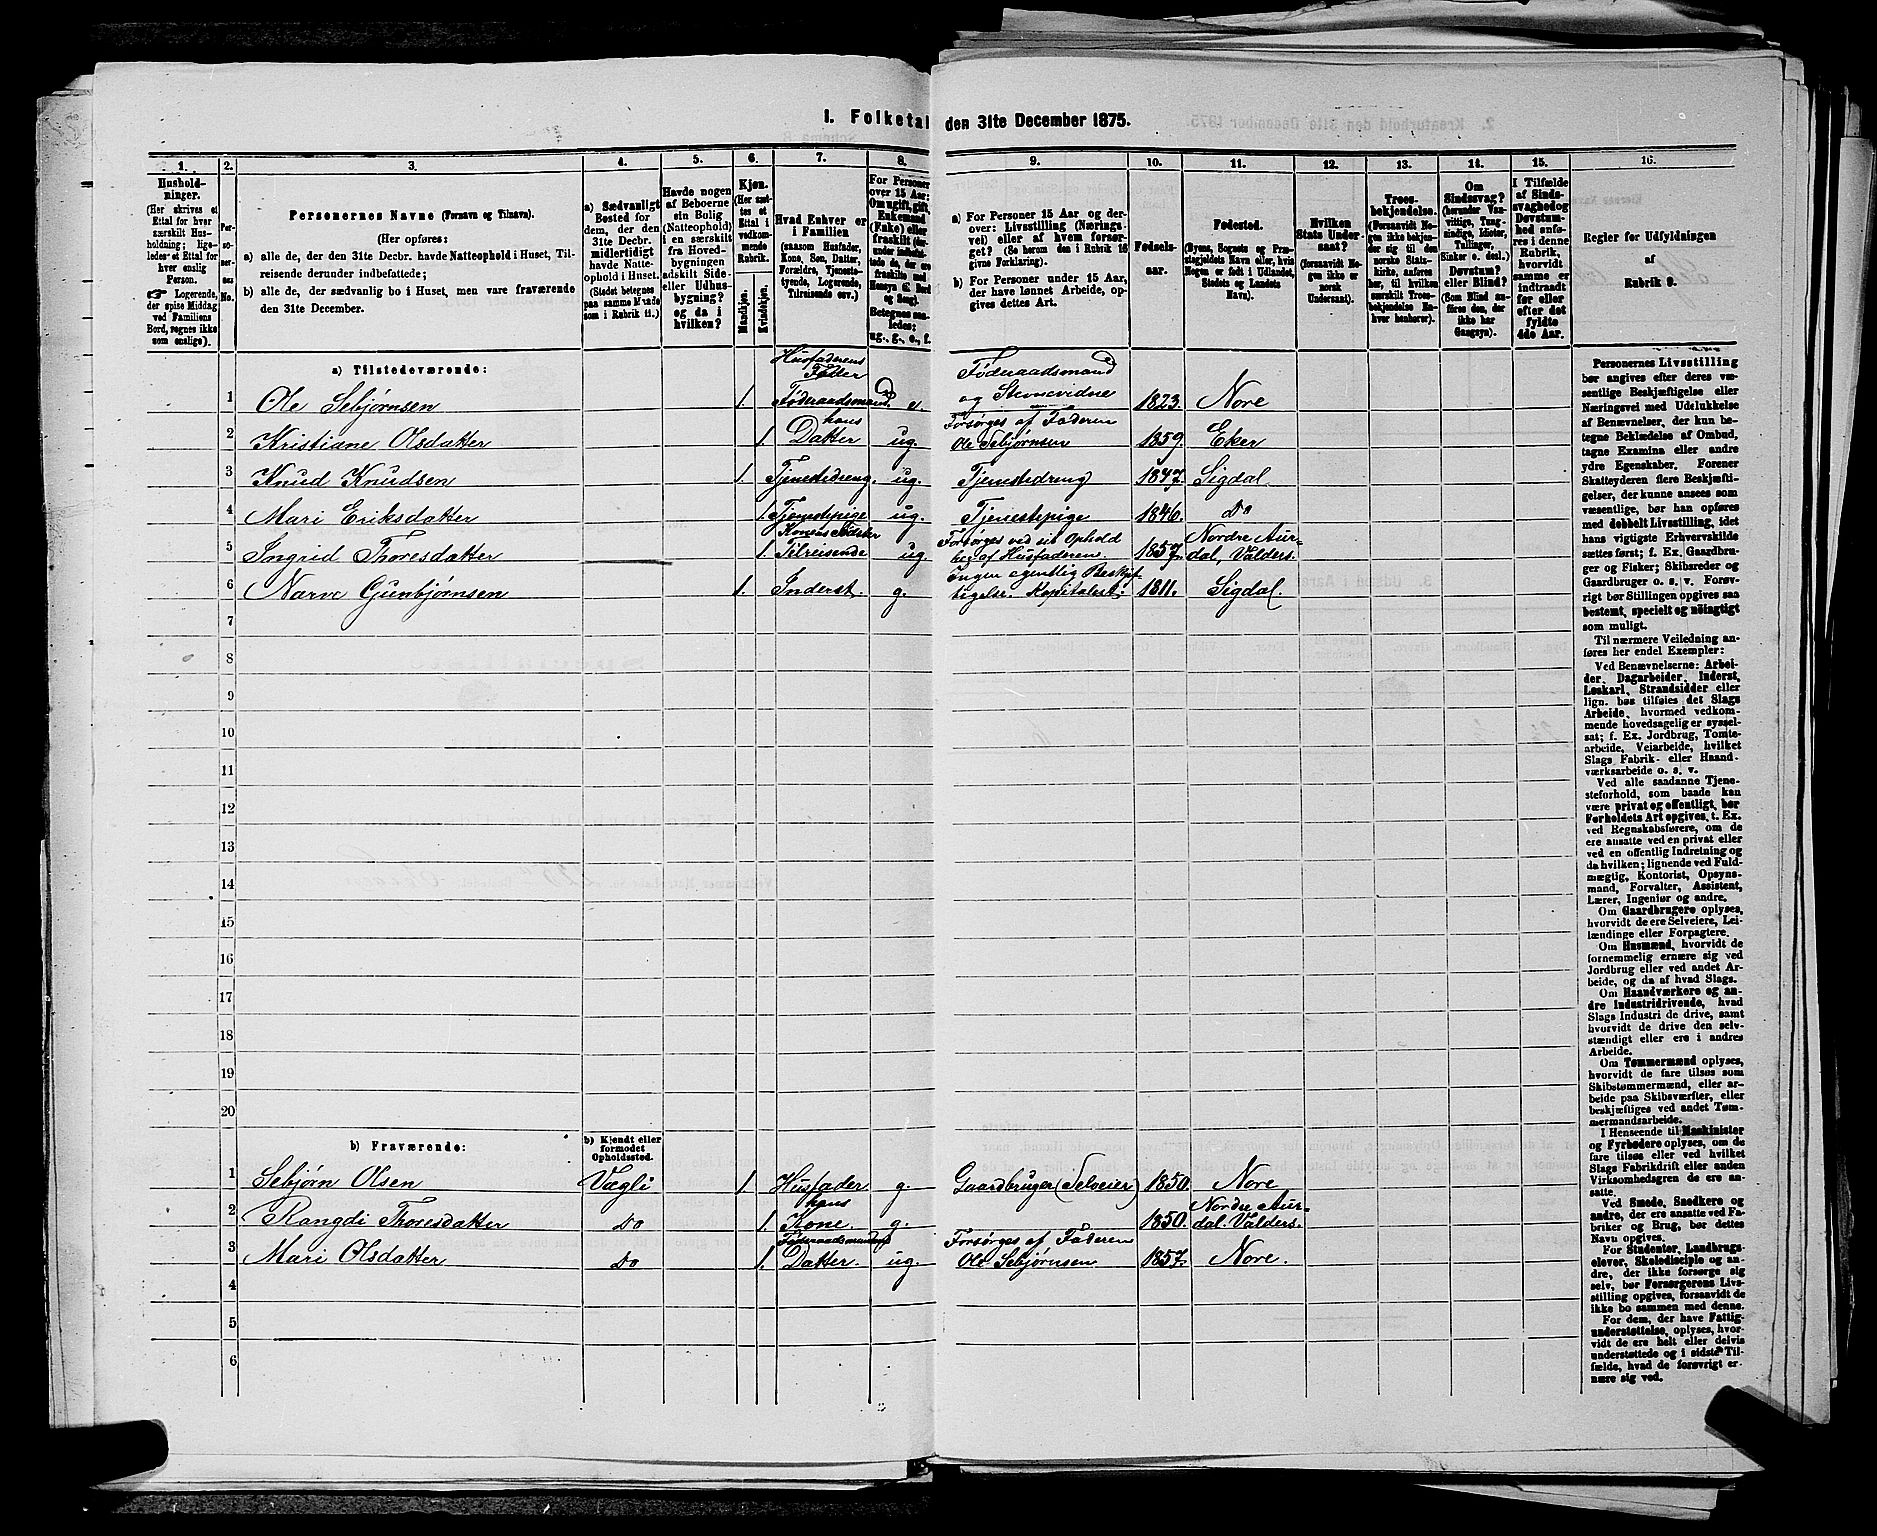 1. Folketal den 31te December 1875.
1. 2. 3. 4. 5. 6. 7. 8. 9. 10. 11. 12. 13. 14. 15. 16.
Hushold-
ninger.
(Her skrives et
Ettal for hver
særskilt Hus-
holdning; lige-
ledes et Ettal for
hver enslig
Person.
☞ Logerende,
der spise Middag
ved Familiens
Bord, regnes ikke
som enslige).
Per-
so-
ner-
nes
No.
Personernes Navne (Fornavn og Tilnavn).
(Her opføres:
a) alle de, der den 31te Decbr. havde Natteophold i Huset, Til-
reisende derunder indbefattede;
b) alle de, der sædvanlig bo i Huset, men vare fraværende
den 31te December.
a) Sædvanligt
Bosted for
dem, der den
31te Decbr.
midlertidigt
havde Natte-
ophold i Huset.
(Stedet betegnes
paa samme Maade
som i Rubrik 11.)
Havde nogen
af Beboerne
sin Bolig
(Natteophold)
i en særskilt
fra Hoved-
bygningen
adskilt Side-
eller Udhus-
bygning?
og da i
hvilken?
Kjøn.
(Her sæt-
tes et
Ettal i
vedkom-
mende
Rubrik.
Mandkjøn.
Kvindekjøn.
Hvad Enhver er
i Familien
(saasom Husfader,
Kone, Søn, Datter,
Forældre, Tjeneste-
tyende, Logerende,
Tilreisende osv.)
For Personer
over 15 Aar:
Om ugift, gift,
Enkemand
(Enke) eller
fraskilt
Betegnes saa-
ledes:
ug., g., e., f.
a) For Personer 15 Aar og der-
over: Livsstilling (Nærings-
vei) eller af hvem forsør-
get? (Se herom den i Rubrik 16
givne Forklaring).
b) For Personer under 15 Aar,
der have lønnet Arbeide, op-
gives dettes Art.
Fødsels-
aar.
Fødested.
(Byens, Sognets og Præ-
stegjeldets Navn eller, hvis
Nogen er født i Udlandet,
Stedets og Landets
Navn).
Hvilken
Stats Under-
saat?
(forsaavidt No-
gen ikke er
norsk
Undersaat).
Troes-
bekjendelse.
(Forsaavidt No-
gen ikke bekjen-
der sig til den
norske Stats-
kirke, anføres
her, til hvilken
særskilt Troes-
bekjendelse En-
hver henhører).
Om
Sindssvag?
(herunder Van-
vittige, Tung-
sindige, Idioter,
Tullinger,
Sinker o. desl.)
Døvstum?
eller Blind?
(Som Blind an-
føres den, der
ikke har
Gangsyn).
I Tilfælde
af Sinds-
svaghed og
Døvstum-
hed anfø-
res i denne
Rubrik,
hvorvidt
samme er
indtraadt
før eller
efter det
fyldte
4de Aar.
Regler for Udfyldningen
af
Rubrik 9.
a) Tilstedeværende:
1 Ole Sebjørnsen 1. Husfaderens Fader Føderaadsmand. e. Føderaadsmand og Stevnevidne 1823. Nore
2 Kristiane Olsdatter 1. hans Datter ug. Forsørges af Faderen Ole Sebjørnsen 1859. Eker
3 Knud Knudsen 1. Tjenestedreng. ug. Tjenestedreng 1847. Sigdal.
4 Mari Eriksdatter 1. Tjenestepige ug. Tjenestepige 1846. Do
5 Ingrid Thoresdatter 1. Konens Søster Tilreisende ug. Forsørges ved sit Ophold her af Husfaderen. 1857. Nordre Aur-dal, Valders.
6 Narve Gunbjørnsen 1. Inderst. g. Ingen egentlig Beskjæf-tigelse. Kapitalist. 1811. Sigdal.
7
8
9
10
11
12
13
14
15
16
17
18
19
20
b) Fraværende:
b) Kjendt eller
formodet
Opholdssted.
1 Sebjørn Olsen Vægli 1. Husfader g. Gaardbruger (Selveier) 1850. Nore
2 Rangdi Thoresdatter Do 1. hans Kone. g. 1850. Nordre Aur-dal, Valders.
3 Mari Olsdatter Do 1. Føderaadsmandens Datter. ug. Forsørges af Faderen Ole Sebjørnsen 1857. Nore.
4
5
6
Personernes Livsstilling
bør angives efter deres væ-
sentlige Beskjæftigelse eller
Næringsvei med Udelukkelse
af Benævnelser, der kun be-
tegne Beklædelse af Ombud,
tagne Examina eller andre
ydre Egenskaber. Forener
Skatteyderen flere Beskjæfti-
gelser, der kunne ansees som
væsentlige, bør han opføres
med dobbelt Livsstilling, idet
hans vigtigste Erhvervskilde
sættes først; f. Ex. Gaardbru-
ger og Fisker; Skibsreder og
Gaardbruger o. s. v. Forøv-
rigt bør Stillingen opgives saa
bestemt, specielt og nøiagtigt
som muligt.
Til nærmere Veiledning an-
føres her endel Exempler:
Ved Benævnelserne: Arbei-
der, Dagarbeider, Inderst,
Løskarl, Strandsidder eller
lign. bør tilføies det Slags
Arbeide, hvormed vedkom-
mende hovedsagelig er syssel-
sat; f. Ex. Jordbrug, Tomte-
arbeide, Veiarbeide, hvilket
Slags Fabrik- eller Haand-
værksarbeide o. s. v.
Ved alle saadanne Tjene-
steforhold, som baade kan
være privat og offentligt, bør
Forholdets Art opgives, t. Ex.
ved Regnskabsførere, om de
ere ansatte ved en privat eller
ved en offentlig Indretning og
da hvilken; lignende ved Fuld-
mægtig, Kontorist, Opsyns-
mand, Forvalter, Assistent,
Lærer, Ingeniør og andre.
Om Gaardbrugere oplyses,
hvorvidt de ere Selveiere, Lei-
lændinge eller Forpagtere.
Om Husmænd, hvorvidt de
fornemmelig ernære sig ved
Jordbrug eller ved andet Ar-
beide, og da af hvad Slags.
Om Haandværkere og an-
dre Industridrivende, hvad
Slags Industri de drive, samt
hvorvidt de drive den selv-
stændigt eller ere i andres
Arbeide.
Om Tømmermænd oplyses,
hvorvidt de fare tilsøs som
Skibstømmermænd, eller ar-
beide paa Skibsværfter, eller
beskjæftiges ved andet Tøm-
mermandsarbeide.
I Henseende til Maskinister
og Fyrbødere oplyses, om de
fare tilsøs eller ved hvilket
Slags Fabrikdrift eller anden
Virksomhedsgren de ere an-
satte.
Ved Smede, Snedkere og
andre, der ere ansatte ved Fa-
briker og Brug, bør dettes
Navn opgives.
For Studenter, Landbrugs-
elever, Skoledisciple og an-
dre, der ikke forsørge sig
selv, bør Forsørgerens Livs-
stilling opgives, forsaavidt de
ikke bo sammen med denne.
For dem, der have Fattig-
understøttelse, oplyses, hvor-
vidt de ere helt eller delvis
understøttede og i sidste Til-
fælde, hvad de forøvrigt er-
nære sig ved.